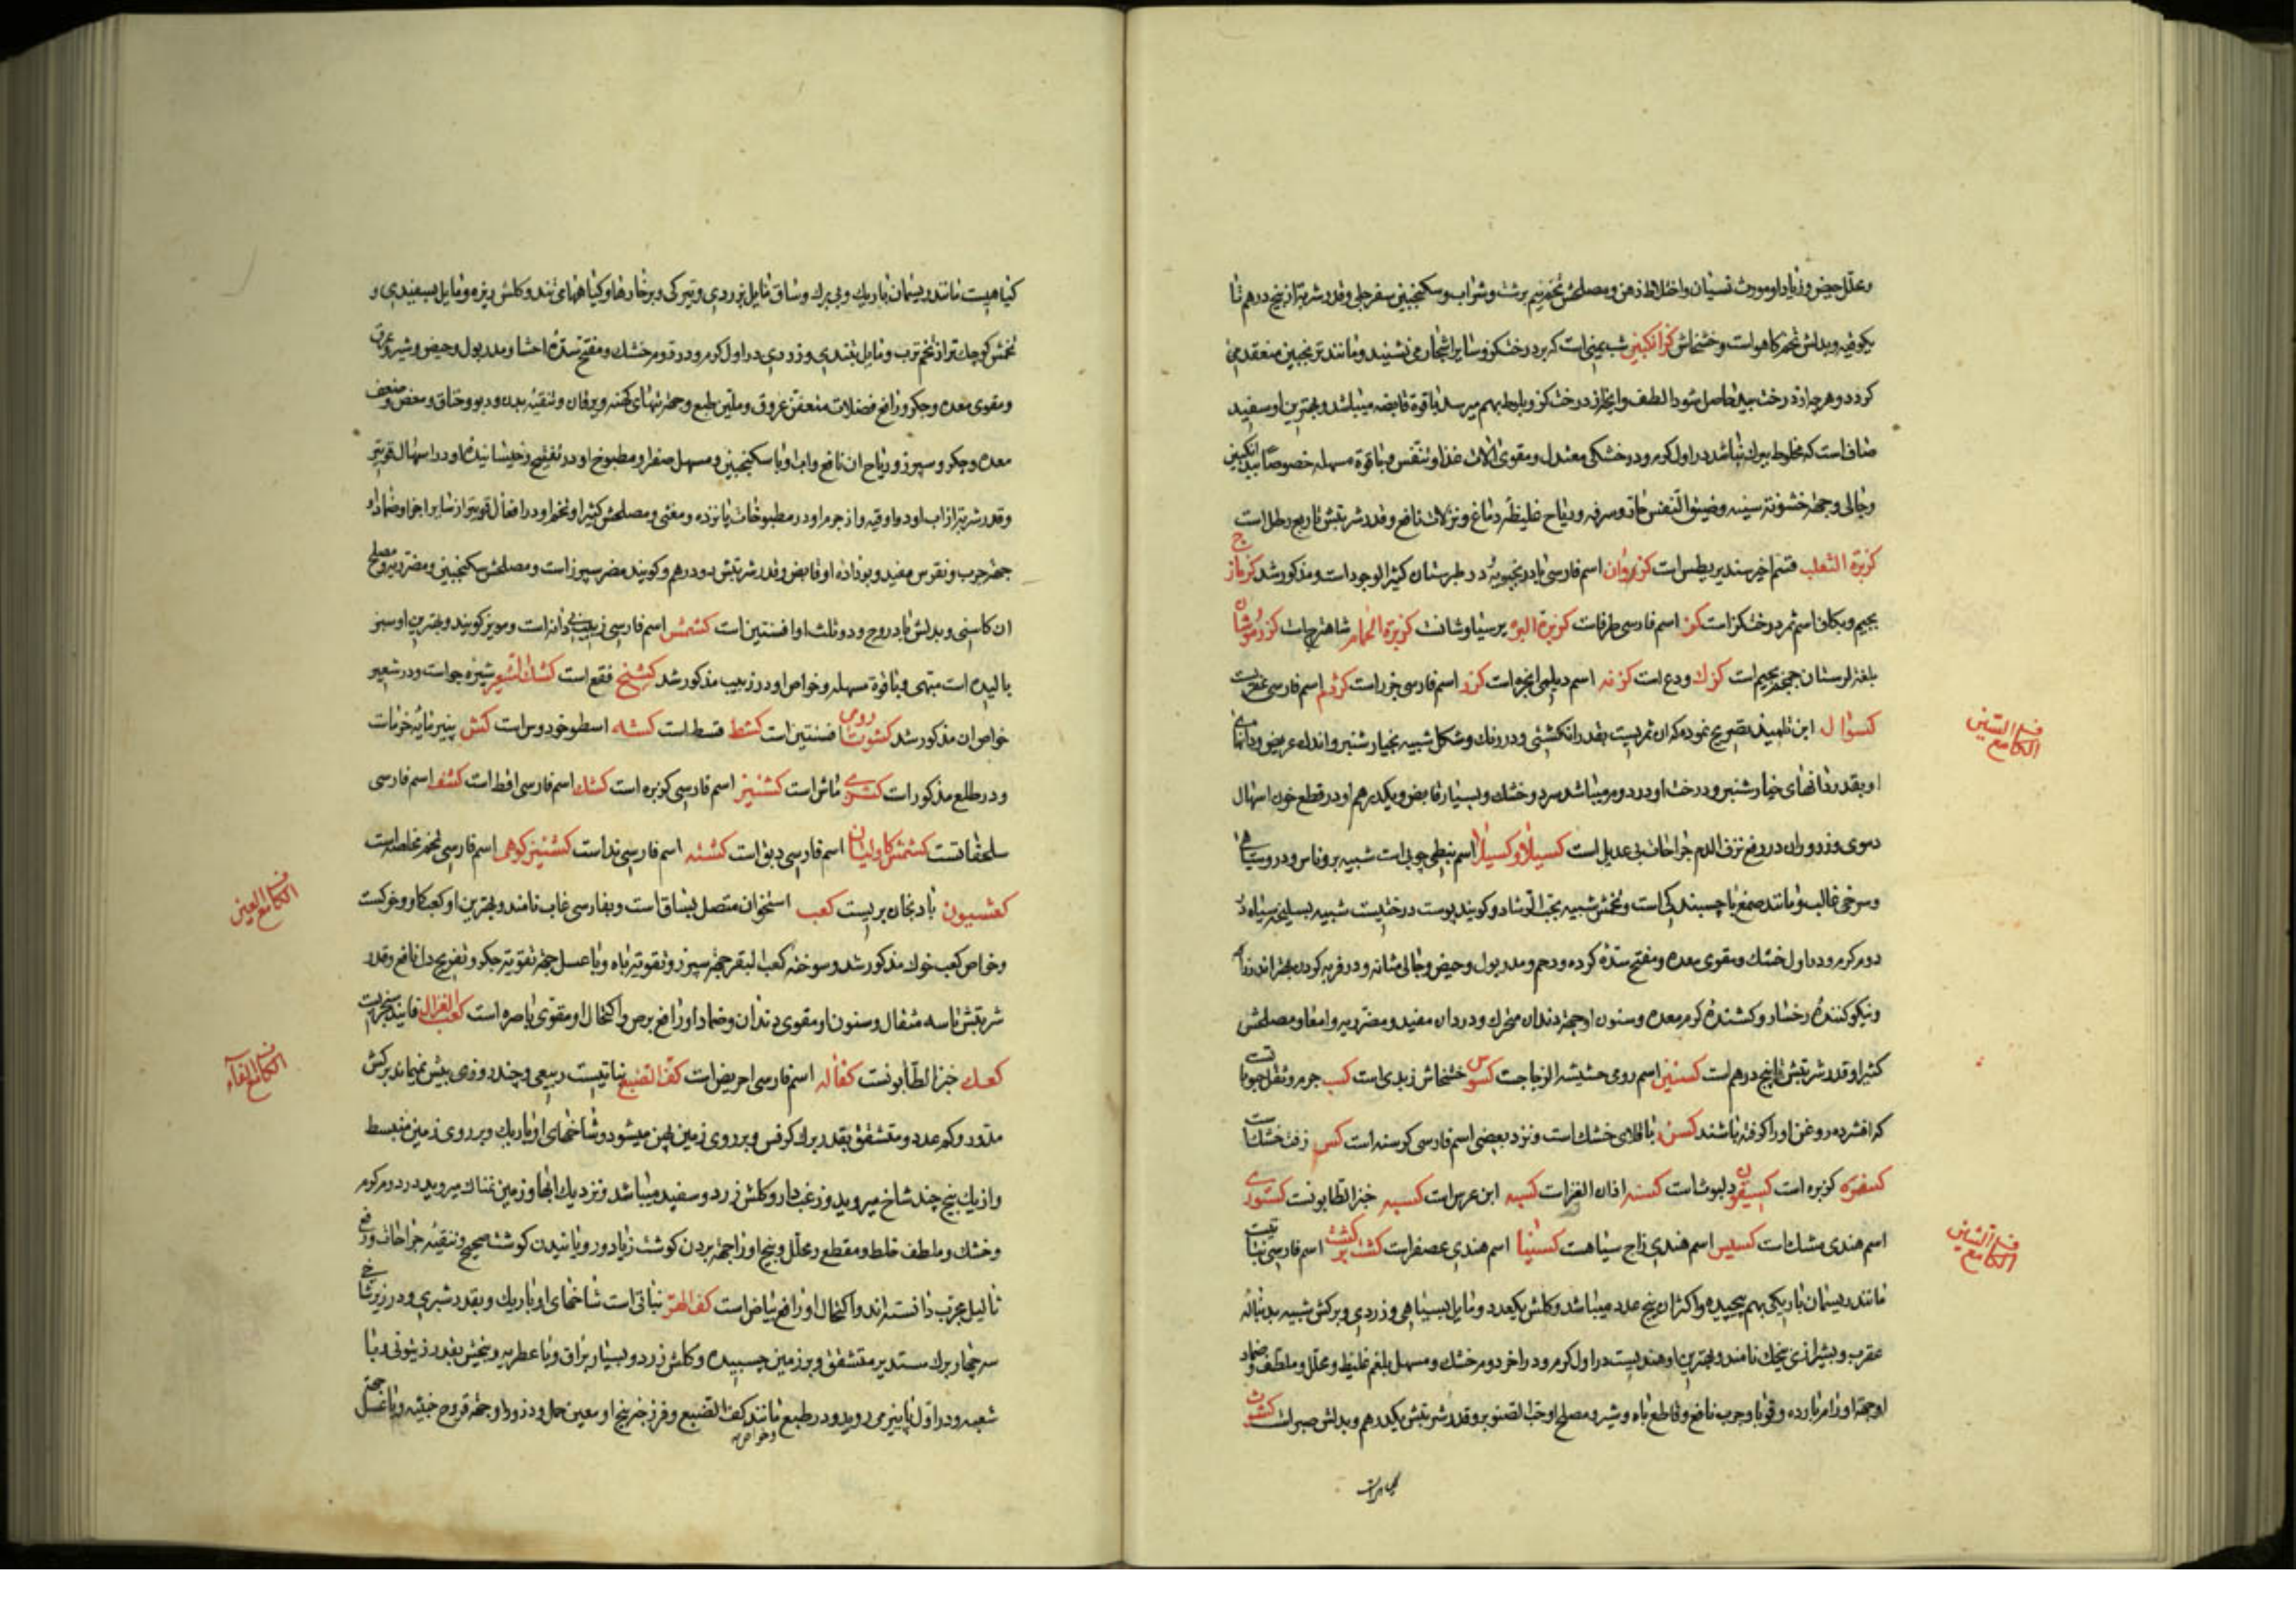 و محلل حیض و زیاد او مورث نسیان و اختلاط ذهن و مصلحش تخم نیم برشت و شراب و سکنجبین سفرجلی و قدر شربتش از پنج درهم تا
یکوقیه و بدلش تخم کاهو است و خشخاش کزانکبین شبنمی است که بر درخت کز و سایر اشجار می نشیند و مانند ترنجبین منعقد می
کردد و هر چه از درخت بید حاصل شود الطف و آنچه از درخت کز و بلوط بهم میرسد با قوة قابضه میباشد و بهترین او سفید
صاف است که مخلوط ببرك نباشد در اول کرم و در خشکی معتدل و مقوی آلات غذا و تنفس و با قوة مسهله خصوصا بید انکبین
و جالی و جهة خشونة سینه و ضیق النفس حاد و سرفه و ریاح غلیظه دماغ و نزلات نافع و قدر شربتش تا ربع رطل است
کزبرة الثعلب قسم اخیر سندیریطس است کزروان اسم فارسی بادرنجبویه و در طبرستان کثیر الوجود است و مذکور شد کزماز
بجیم و بکاف اسم ثمر درخت کز است کز اسم فارسی طرفا است کزبرة البئر برسیاوشان است کزبرة الحمام شاهترج است کزدموشان
بلغة لرستان است کزك ودع است کزنه اسم دیلمی انجره است کزر اسم فارسی جزر است کژدم اسم فارسی عقرب است
فصل الکاف مع السین
کسوال ابن تلمیذ تصریح نموده که آن ثمریست بقدر انکشتی و در رنك و شکل شبیه بخیار شنبر و اندك عریض و دانهای
او بقدر دانهای خیار شنبر و درخت او در دوم میباشد سرد و خشك و بسیار قابض و یکدرهم او در قطع خون اسهال
دموی و ذرور آن در رفع نزف الدم جراحات بی عدیل است کسیلا و کسیلا اسم نبطی چوبی است شبیه بروناس و در و سیاهی
و سرخی غالب و مانند صمغ با چسبندکی است و تخمش شبیه بحب الرشاد و کویند پوست درختیست شبیه بسلیخه سیاه در
دوم کرم و در اول خشك و مقوی معده و مفتح سده کرده و رحم و مدر بول و حیض و جالی مثانه و در فربه کردن
و نیکو کننده رخسار و کشنده کرم معده و سنون او جهة دندان متحرك و درد آن مفید و مضر پیر و امعا و مصلحش
کثیرا و قدر شربتش تا پنج درهم است کسنین اسم رومی حشیشة الزجاج است کسوس خشخاش زبدی است کسب جرم و ثفل حبوبا
که افشرده روغن او را کرفته باشند کسن باقلای خشك است و نزد بعضی اسم فارسی کرسنه است کس زفت خشك است
کسفره کزبره است کسیفون دلبوث است کسنه اذان الغزا است کسه ابن عرس است کسبه خبز الطابونست کستوری
اسم هندی مشك است کسیس اسم هندی زاج سیاهست کسنیا اسم هندی عصفر است کشت برکشت اسم فارسی نباتیست
فصل الکاف مع الشین
مانند ریسمان باریکی بهم پیچیده و اکثر آن پنج عدد میباشد و کلش یکعدد و مایل بسیاهی و زردی و برکش شبیه بدنباله
عقرب و بشیرازی پیچك نامند و بهترین او هندیست در اول کرم و در آخر دوم خشك و مسهل بلغم غلیظ و محلل و ملطف و ضماد
او جهة اورام بارده و قوبا و جرب نافع و قاطع باه و شیر و مصلح او حب الصنوبر و قدر شربتش یکدرهم و بدلش صبر است کشوث
کیاهیست مانند ریسمان باریك و بی برك و ساق مایل بزردی و تیرکی و بر خارها و کیاههای تند و کلش ریزه و مایل بسفیدی و
تخمش کوچك تر از تخم ترب و مایل بتندی و زردی در اول کرم و در دوم خشك و مفتح سده احشا و مدر بول و حیض و شیر و عرق
و مقوی معده و جکر و رافع فضلات متعفن عروق و ملین طبع و جهة تبهای کهنه و یرقان و تنقیه بدن و ربو و خناق و مغص و ضعف
معده و جکر و سپرز و ریاح آن نافع و آب او با سکنجبین و مسهل صفرا و مطبوخ او در تفتیح و خیسانیده او در اسهال قویتر
و قدر شربت از آب او دو اوقیه و از جرم او در مطبوخات پانزده و مغثی و مصلحش کثیرا و تخم او در افعال قویتر از سایر اجزا و ضماد او
جهة جرب و نقرس مفید و بو داده او قابض و قدر شربتش دو درهم و کویند مضر سپرز است و مصلحش سکنجبین و مضر ریه و مصلح
آن کاسنی و بدلش بادروج و دو ثلث او افسنتین است کشمش اسم فارسی زبیب بی دانه است و مویز کویند و بهترین او سبز
بالیده است مبهی و با قوة مسهله و خواص او در زبیب مذکور شد کشنج فقع است کشک الشعیر شیره جو است و در شعیر
خواص آن مذکور شد کشوث رومی افسنتین است کشط قسط است کشه اسطوخودوس است کش پنیرمایه خرما است
و در طلع مذکور است کشری ماش است کشنیز اسم فارسی کزبره است کشك اسم فارسی اقط است کشف اسم فارسی
سلحفات است کشمش کاولیان اسم فارسی دبق است کشته اسم فارسی ند است کشنیز کوهی اسم فارسی تخم مخلصه است
فصل الکاف مع العین
کعشیون بادنجان بریست کعب استخوان متصل بساق است و بفارسی غاب نامند و بهترین او کعب کاو و خوکست
و خواص کعب خوك مذکور شد و سوخته کعب البقر جهة سپرز و تقویة باه و با عسل جهة تقویة جکر و تفریح دل نافع و قدر
شربتش تا سه مثقال و سنون او مقوی دندان و ضماد او رافع برص و اکتحال او مقوی باصره است کعب الغزال فانید سنجریست
فصل الکاف مع الفاء
کعك خبز الطابونست کفاله اسم فارسی احریض است کف الضبع نباتیست ربیعی و چند روزی بیش نمیماند برکش
مدور و کم عدد و متشقق بقدر برك کرفس و بر روی زمین پهن میشود و شاخهای او باریك و بر روی زمین منبسط
و از یك بیخ چند شاخ میروید و زغب دار و کلش زرد و سفید میباشد و نزدیك آبها و زمین نمناك میروید در دوم کرم
و خشك و ملطف خلط و مقطع و محلل و بیخ او را جهة بردن کوشت زیاد و رویانیدن کوشت صحیح و تنقیه جراحات و رفع
ثالیل مجرب دانسته اند و اکتحال او رافع بیاض است کف الهر نباتی است شاخهای او باریك و بقدر شبری و در زیر شاخ
سه چهار برك مستدیر متشقق و بر زمین چسبیده و کلش زرد و بسیار براق و با عطریه و بیخش بقدر زیتونی و با
شعبه و در اول پاییز می روید و در طبع مانند کف الضبع و فرزجه بیخ او معین حمل و ذرور او جهة قروح خبیثه و با عسل جهة